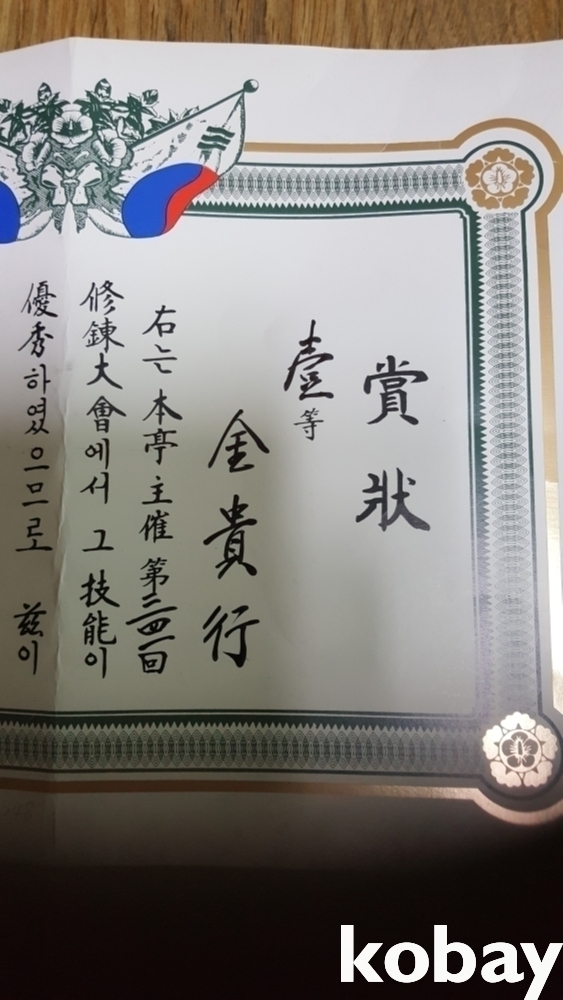 賞狀
壹等
金貴行
右는 本亭 主催 第三四一回
修鍊大會에서 그 技能이
優秀하였으므로 玆이
kobay